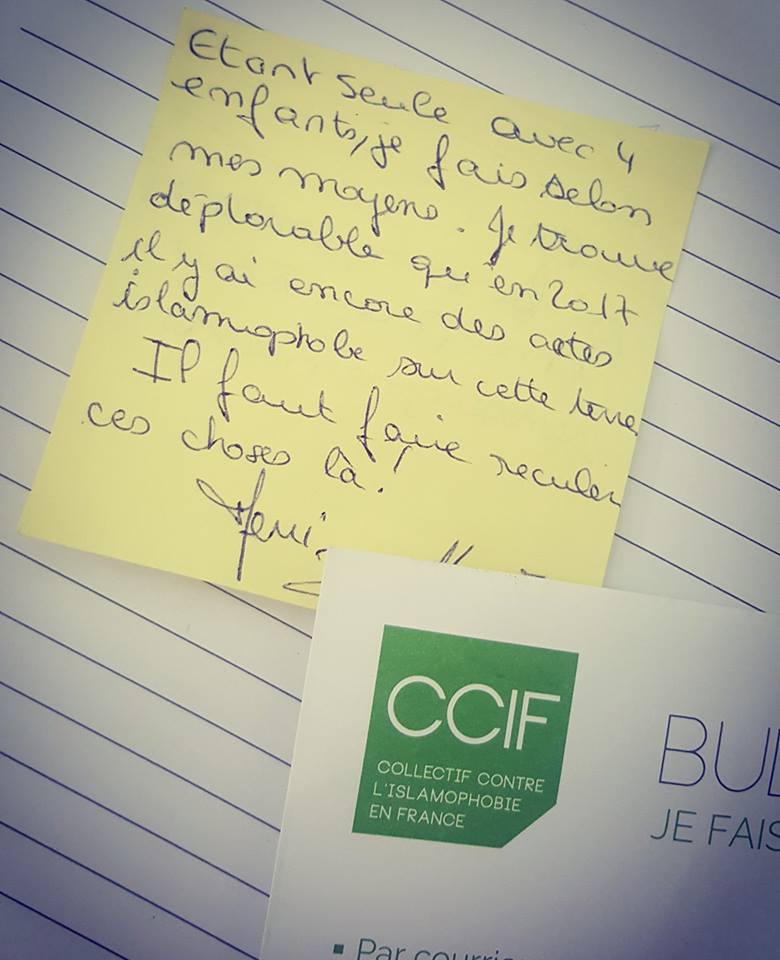 Etant seule avec 4
enfants, je fais selon
mes moyens. Je trouve
déplorable qu'en 2017
il y ai encore des actes
islamophobe sur cette terre
Il faut faire reculer
ces choses là!
CCIF
COLLECTIF CONTRE
L'ISLAMOPHOBIE
EN FRANCE
JE FAIS
▪ Par